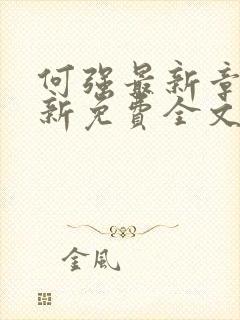 何强最新章
新免费全文
金风